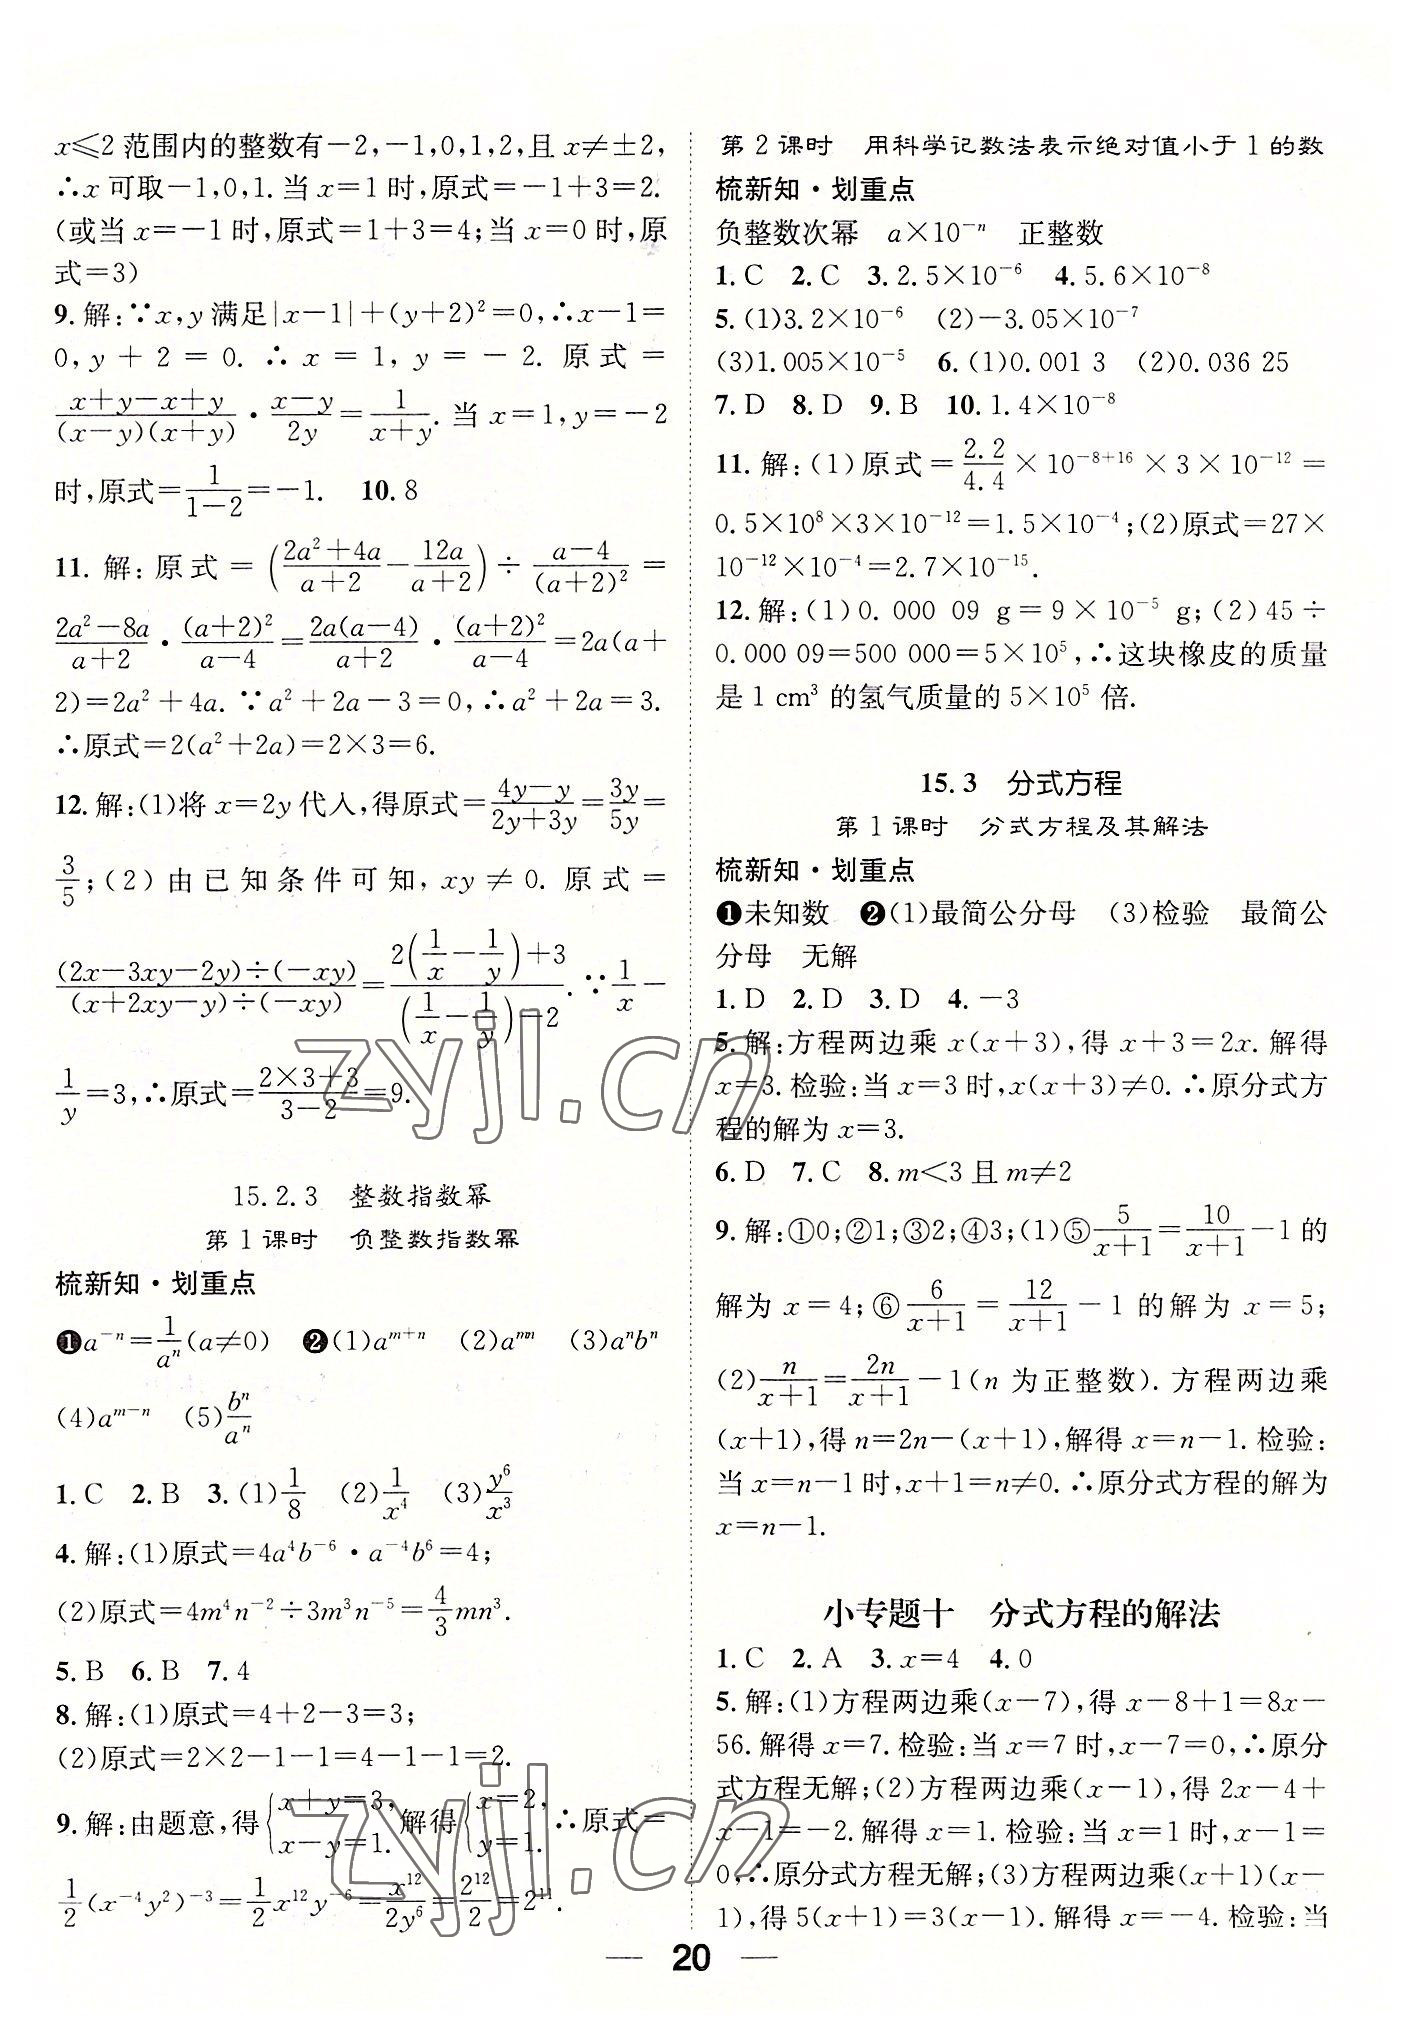 x≤2范围内的整数有-2,-1,0,1,2,且x≠±2,
∴x可取-1,0,1.当x=1时,原式=-1+3=2.
(或当x=-1时,原式=1+3=4;当x=0时,原
式=3)
9.解:∵x,y满足|x-1|+(y+2)²=0,∴x-1=
0,y+2=0.∴x=1,y=-2.原式=
(x+y-x+y)/((x-y)(x+y))·(x-y)/(2y)=1/(x+y).当x=1,y=-2
时,原式=1/(1-2)=-1. 10.8
11.解:原式=((2a²+4a)/(a+2)-12a/(a+2))÷(a-4)/(a+2)²=
(2a²-8a)/(a+2)·(a+2)²/(a-4)=2a(a-4)/(a+2)·(a+2)²/(a-4)=2a(a+
2)=2a²+4a.∵a²+2a-3=0,∴a²+2a=3.
∴原式=2(a²+2a)=2×3=6.
12.解:(1)将x=2y代入,得原式=(4y-y)/(2y+3y)=3y/5y=
3/5;(2)由已知条件可知,xy≠0.原式=
((2x-3xy-2y)÷(-xy))/((x+2xy-y)÷(-xy))=(2(1/x-1/y)+3)/((1/x-1/y)-2).∵1/x-
1/y=3,∴原式=(2×3+3)/(3-2)=9.
15.2.3 整数指数幂
第1课时 负整数指数幂
梳新知·划重点
❶a⁻ⁿ=1/aⁿ(a≠0) ❷(1)aᵐ⁺ⁿ (2)aᵐⁿ (3)aⁿbⁿ
(4)aᵐ⁻ⁿ (5)bⁿ/aⁿ
1.C 2.B 3.(1)1/8 (2)1/x⁴ (3)y⁶/x³
4.解:(1)原式=4a⁴b⁻⁶·a⁻⁴b⁶=4;
(2)原式=4m⁴n⁻²÷3m³n⁻⁵=4/3mn³.
5.B 6.B 7.4
8.解:(1)原式=4+2-3=3;
(2)原式=2×2-1-1=4-1-1=2.
9.解:由题意,得{x+y=3,x-y=1.解得{x=2,y=1.∴原式=
1/2(x⁻⁴y²)⁻³=1/2x¹²y⁻⁶=x¹²/2y⁶=2¹²/2=2¹¹.
第2课时 用科学记数法表示绝对值小于1的数
梳新知·划重点
负整数次幂 a×10⁻ⁿ 正整数
1.C 2.C 3.2.5×10⁻⁶ 4.5.6×10⁻⁸
5.(1)3.2×10⁻⁶ (2)-3.05×10⁻⁷
(3)1.005×10⁻⁵ 6.(1)0.001 3 (2)0.036 25
7.D 8.D 9.B 10.1.4×10⁻⁸
11.解:(1)原式=2.2/4.4×10⁻⁸⁺¹⁶×3×10⁻¹²=
0.5×10⁸×3×10⁻¹²=1.5×10⁻⁴;(2)原式=27×
10⁻¹²×10⁻⁴=2.7×10⁻¹⁵.
12.解:(1)0.000 09 g=9×10⁻⁵ g;(2)45÷
0.000 09=500 000=5×10⁵,∴这块橡皮的质量
是1 cm³的氢气质量的5×10⁵倍.
15.3 分式方程
第1课时 分式方程及其解法
梳新知·划重点
❶未知数 ❷(1)最简公分母 (3)检验 最简公
分母 无解
1.D 2.D 3.D 4.-3
5.解:方程两边乘x(x+3),得x+3=2x.解得
x=3.检验:当x=3时,x(x+3)≠0.∴原分式方
程的解为x=3.
6.D 7.C 8.m<3且m≠2
9.解:①0;②1;③2;④3;(1)⑤5/(x+1)=10/(x+1)-1的
解为x=4;⑥6/(x+1)=12/(x+1)-1的解为x=5;
(2)n/(x+1)=2n/(x+1)-1(n为正整数).方程两边乘
(x+1),得n=2n-(x+1),解得x=n-1.检验:
当x=n-1时,x+1=n≠0.∴原分式方程的解为
x=n-1.
小专题十 分式方程的解法
1.C 2.A 3.x=4 4.0
5.解:(1)方程两边乘(x-7),得x-8+1=8x-
56.解得x=7.检验:当x=7时,x-7=0,∴原分
式方程无解;(2)方程两边乘(x-1),得2x-4+
x-1=-2.解得x=1.检验:当x=1时,x-1=
0,∴原分式方程无解;(3)方程两边乘(x+1)(x-
1),得5(x+1)=3(x-1).解得x=-4.检验:当
— 20 —
zyjl.cn
zyjl.cn